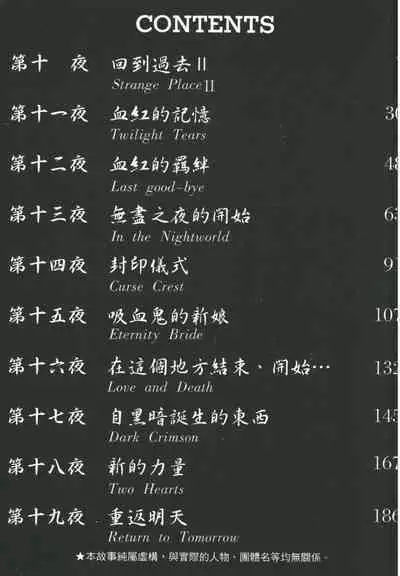 CONTENTS
第十 夜 回到過去II
Strange Place II
第十一夜 血紅的記憶 30
Twilight Tears
第十二夜 血紅的羈絆 48
Last good-bye
第十三夜 無盡之夜的開始 63
In the Nightworld
第十四夜 封印儀式 91
Curse Crest
第十五夜 吸血鬼的新娘 107
Eternity Bride
第十六夜 在這個地方結束、開始…
132
Love and Death
第十七夜 自黑暗誕生的東西 145
Dark Crimson
第十八夜 新的力量 167
Two Hearts
第十九夜 重返明天 186
Return to Tomorrow
★本故事純屬虛構，與實際的人物、團體名等均無關係。